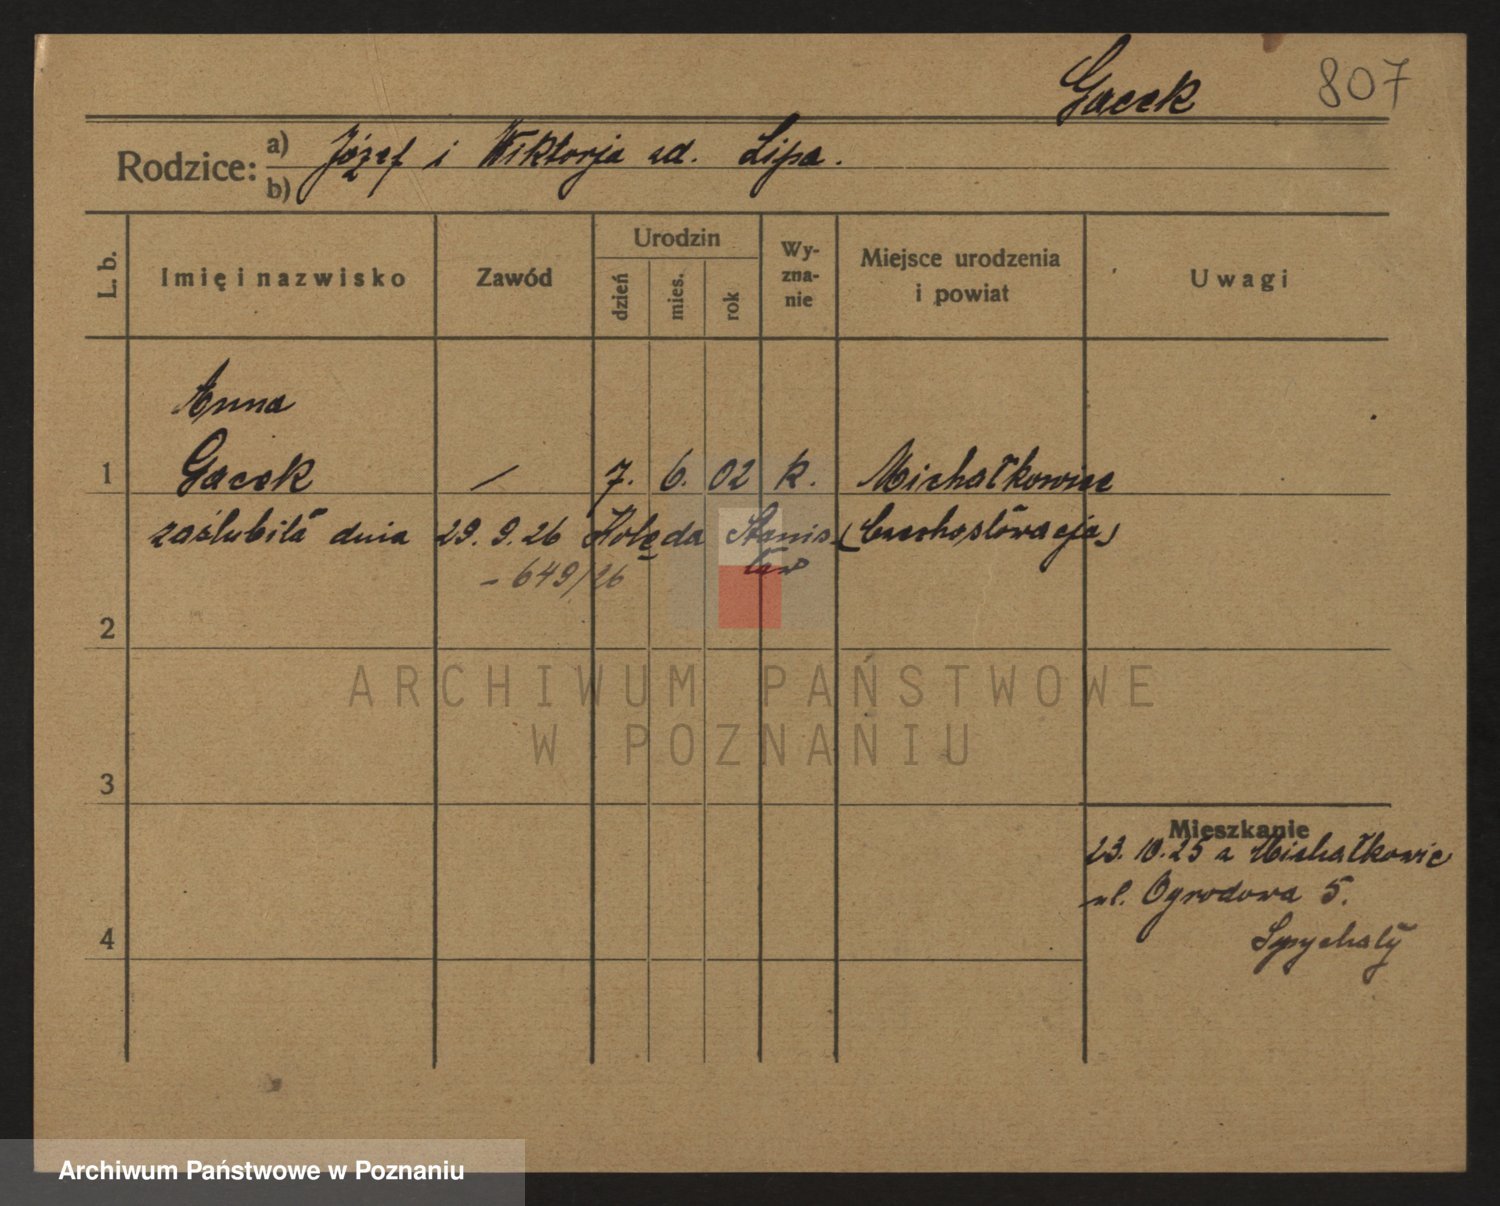 Gacek 807
Rodzice: a) Józef i Wiktorja zd. Lipa.
b)
L. b. Imię i nazwisko Zawód Urodzin dzień mies. rok Wyznanie Miejsce urodzenia i powiat Uwagi
Anna
1 Gacek — 7. 6. 02 k. Michałkowice
zaślubiła dnia 29. 9. 26 Kolęda Stanis- (Czechosłowacja)
ław
- 649/26
2
ARCHIWUM PAŃSTWOWE
W POZNANIU
3
Mieszkanie
23. 10. 25 z Michałkowic
ul. Ogrodowa 5.
4 Spychały
Archiwum Państwowe w Poznaniu